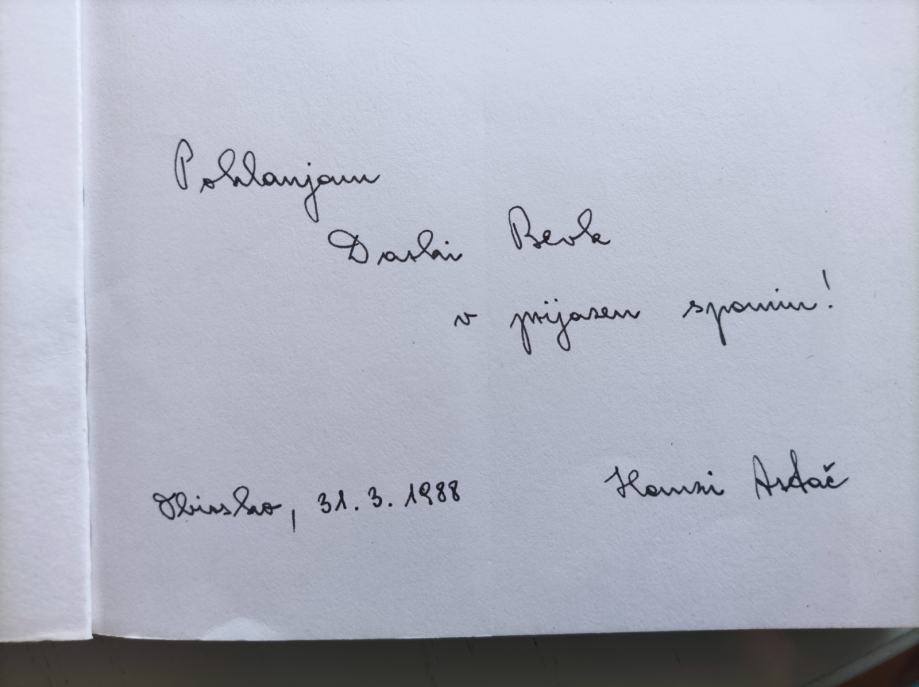 Poklanjam
Darki Bevk
v prijazen spomin!
Obirsko, 31.3.1988
Hanzi